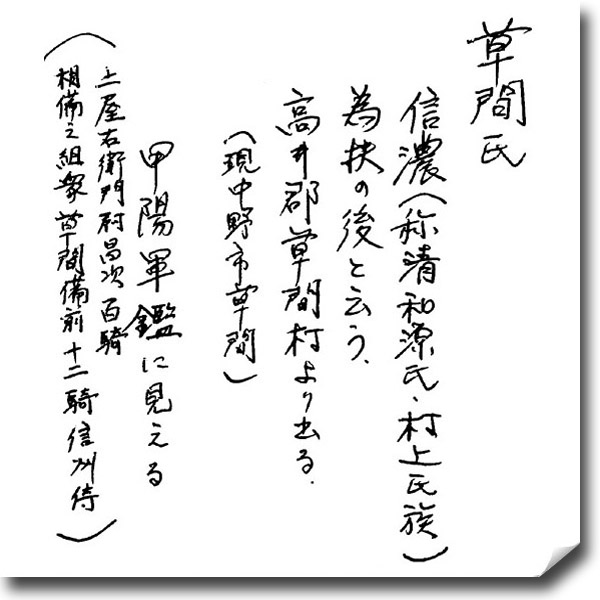 草間氏
信濃(称清和源氏・村上氏族)
為扶の後と云う.
高井郡草間村より出る.
(現中野市草間)
甲陽軍鑑に見える
(土屋右衛門尉昌次百騎
相備之組衆草間備前十二騎信州侍)